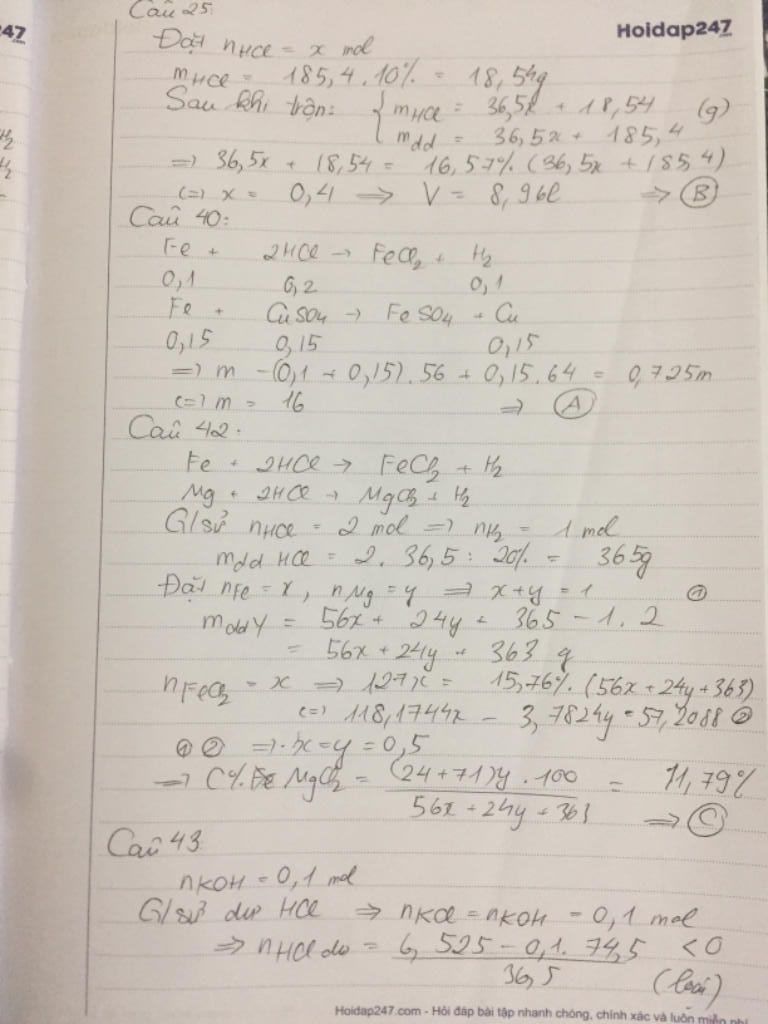 Câu 25:
247
.com
Hoidap247
.com
Đặt nHCl = x mol
mHCl = 185,4.10% = 18,54g
H₂
H₂
Sau khi trộn: { mHCl = 36,5x + 18,54 (g)
mdd = 36,5x + 185,4
=> 36,5x + 18,54 = 16,57%.(36,5x + 185,4)
<=> x = 0,4 => V = 8,96l => B
Câu 40:
Fe + 2HCl → FeCl₂ + H₂
0,1 0,2 0,1
Fe + CuSO₄ → FeSO₄ + Cu
0,15 0,15 0,15
=> m - (0,1 + 0,15).56 + 0,15.64 = 0,725m
<=> m = 16 => A
Câu 42:
Fe + 2HCl → FeCl₂ + H₂
Mg + 2HCl → MgCl₂ + H₂
G/sử nHCl = 2 mol => nH₂ = 1 mol
mdd HCl = 2.36,5 : 20% = 365g
Đặt nFe = x, nMg = y => x + y = 1 ①
mddY = 56x + 24y + 365 - 1.2
= 56x + 24y + 363 g
nFeCl₂ = x => 127x = 15,76%.(56x + 24y + 363)
<=> 118,1744x - 3,7824y = 57,2088 ②
① ② => x = y = 0,5
=> C% MgCl₂ = (24 + 71)y.100 = 11,79%
56x + 24y + 363 => C
Câu 43
nKOH = 0,1 mol
G/sử dư HCl => nKCl = nKOH = 0,1 mol
=> nHCl dư = 6,525 - 0,1.74,5 < 0
36,5 (loại)
Hoidap247.com - Hỏi đáp bài tập nhanh chóng, chính xác và luôn miễn phí